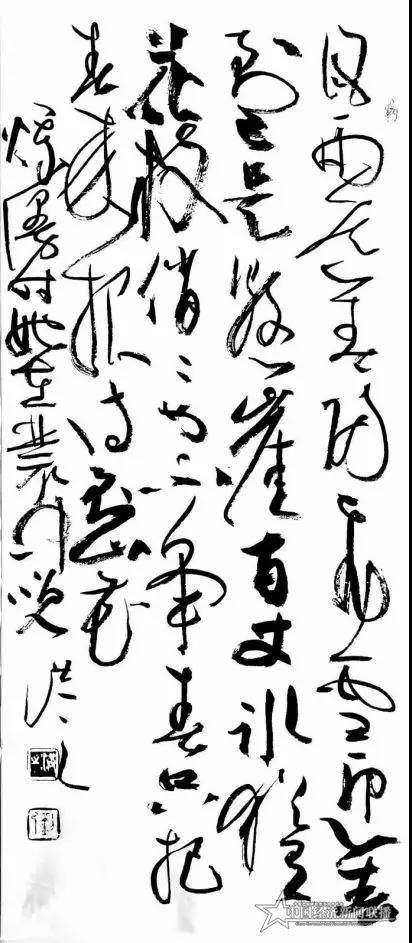 风雨送春归飞雪迎春
到已是悬崖百丈冰犹有
花枝俏〻也不争春只把
春来报待到山花
烂漫时她在丛中笑
中国经济新闻联播